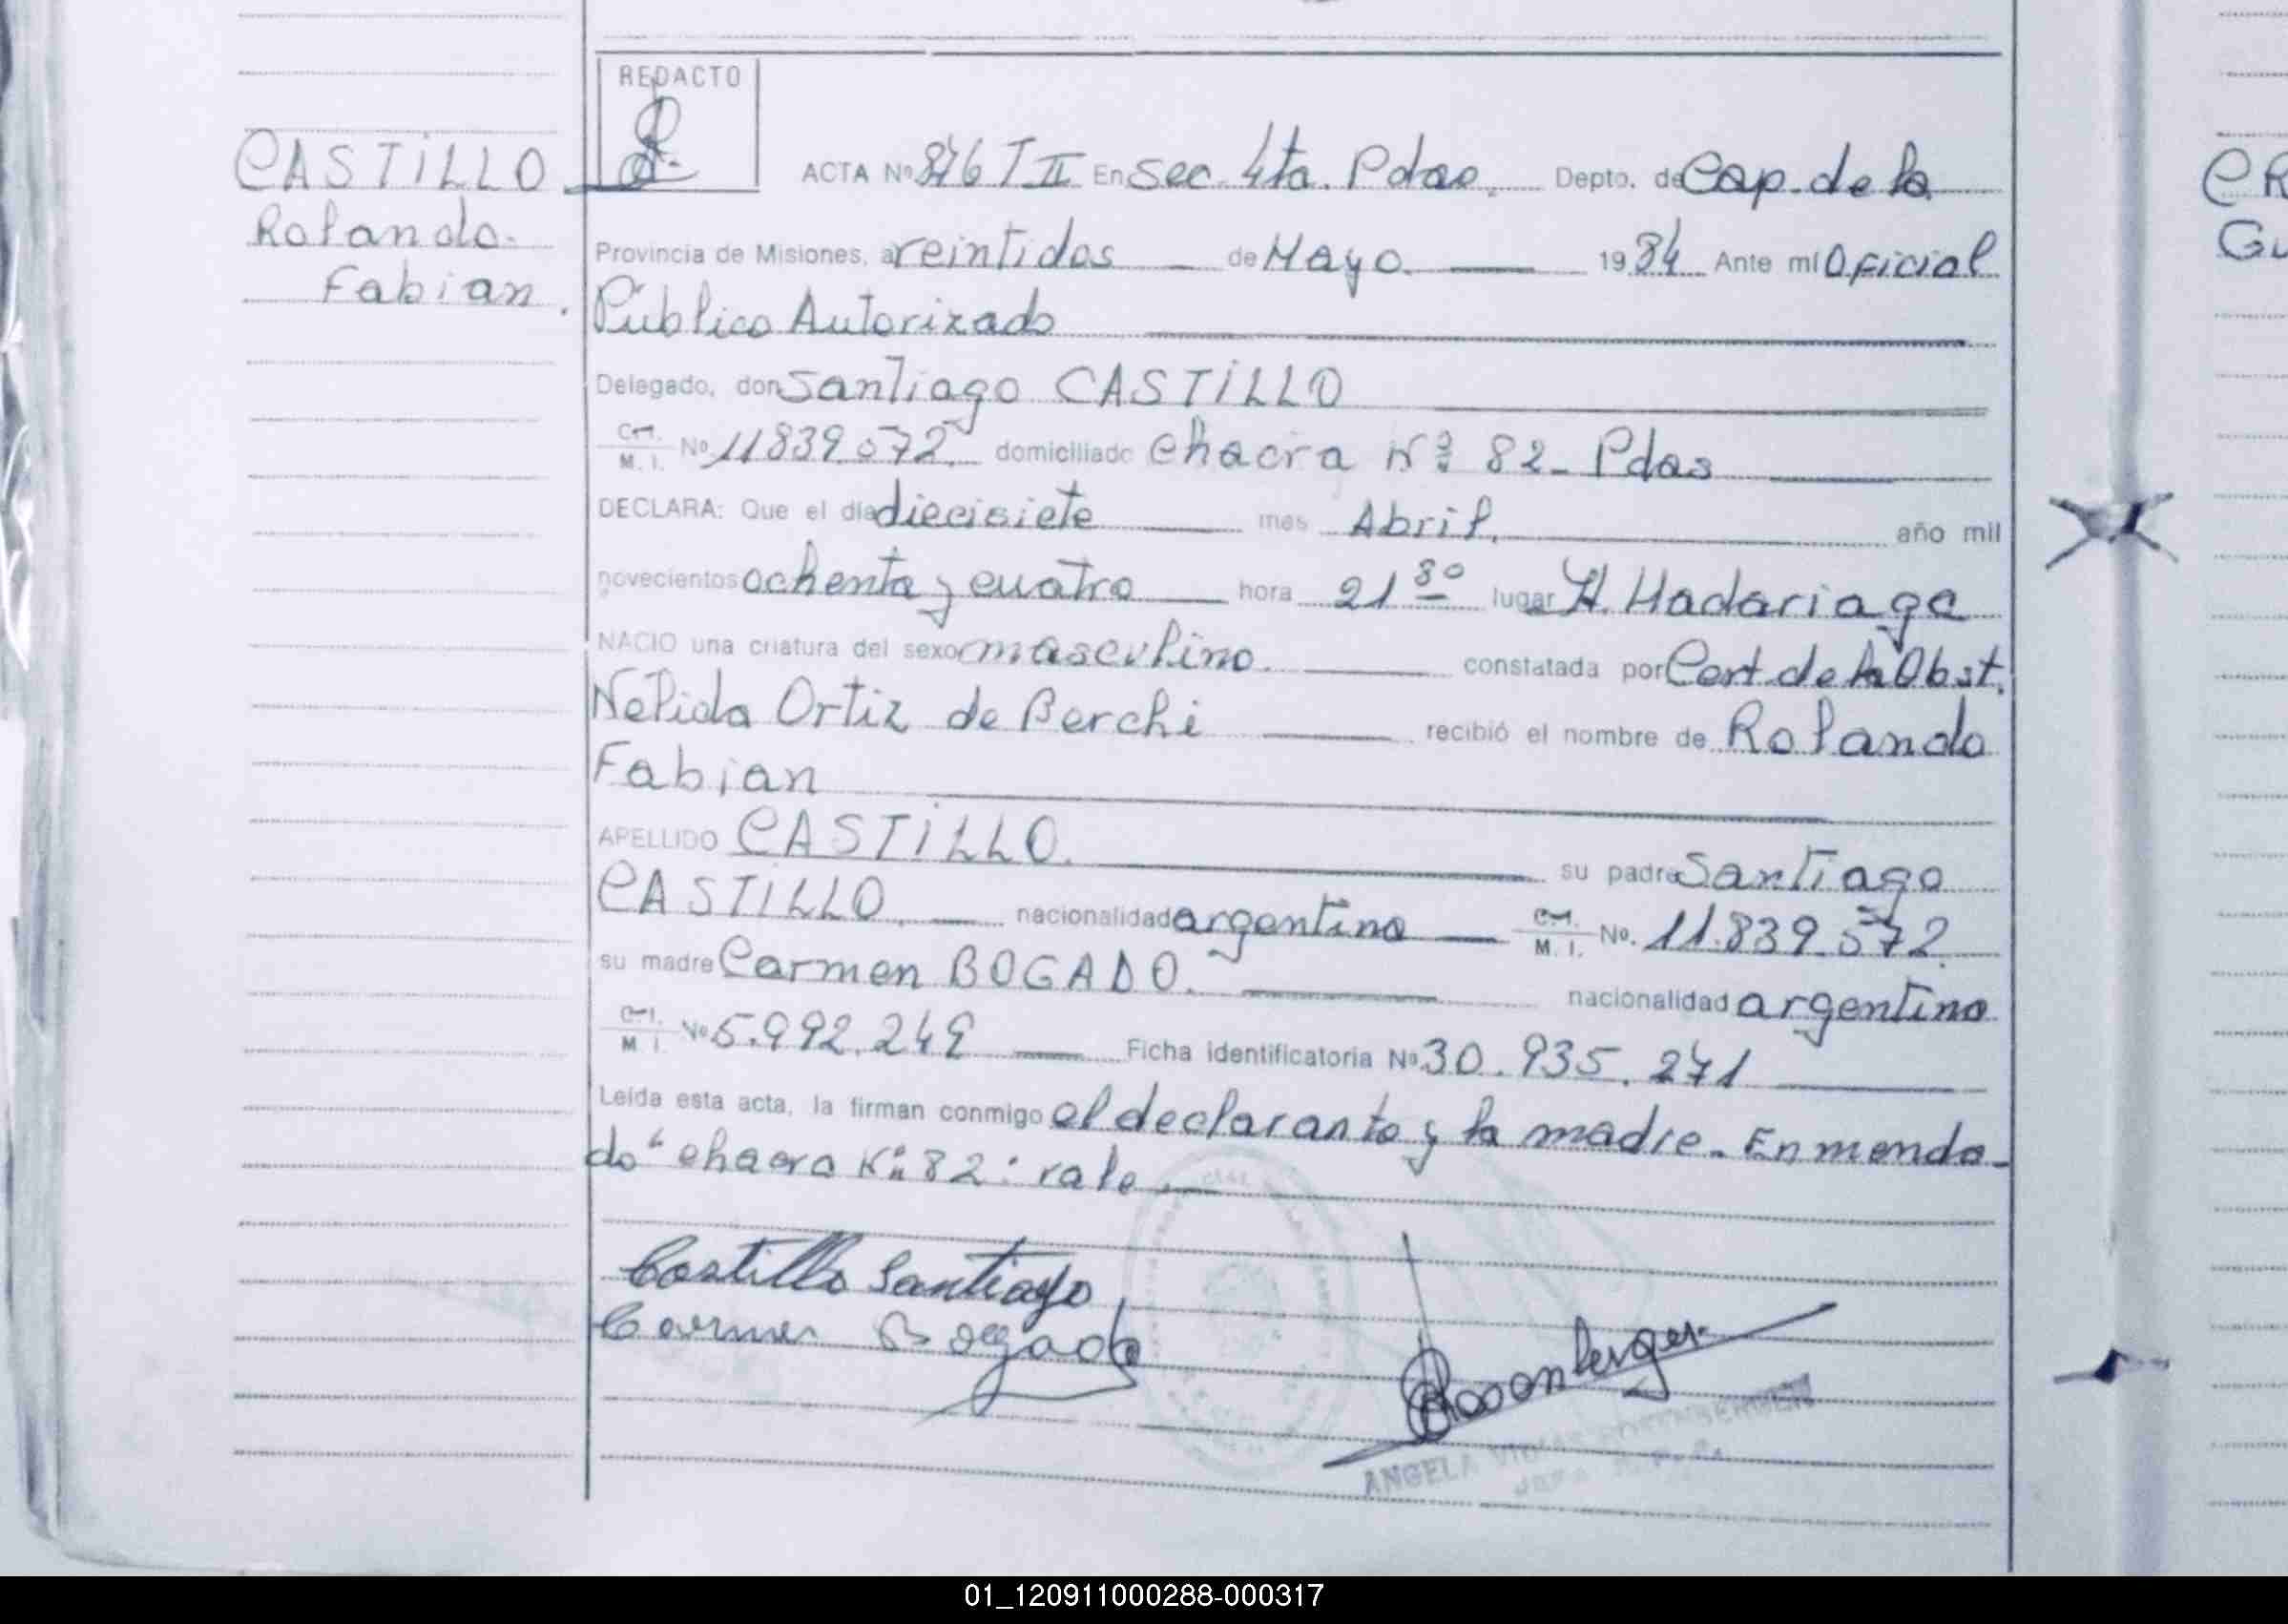 REDACTO
CASTILLO
Rolando
Fabian.
ACTA Nº 876 T II En Sec. 4ta. Pdas. Depto. de Cap. de la
Provincia de Misiones, a veintidos de Mayo. 1984 Ante mí Oficial
Público Autorizado
Delegado, don Santiago CASTILLO
M. I. Nº 11839.572 domiciliado Chacra Nº 82- Pdas
DECLARA: Que el día diecisiete mes Abril, año mil
novecientos ochenta y cuatro hora 21 30 lugar H. Madariaga
NACIO una criatura del sexo masculino. constatada por Cert. de la Obst.
Nelida Ortiz de Berchi recibió el nombre de Rolando
Fabian
APELLIDO CASTILLO. su padre Santiago
CASTILLO, nacionalidad argentina M. I. Nº. 11.839.572
su madre Carmen BOGADO. nacionalidad argentina
M. I. Nº 5.992.249 Ficha identificatoria Nº 30.935.271
Leída esta acta, la firman conmigo el declarante y la madre. Enmenda-
do "chacra 82: vale
Castillo Santiago
Carmen Bogado
Rosenberger
ANGELA ROSENBERGER
01_120911000288-000317